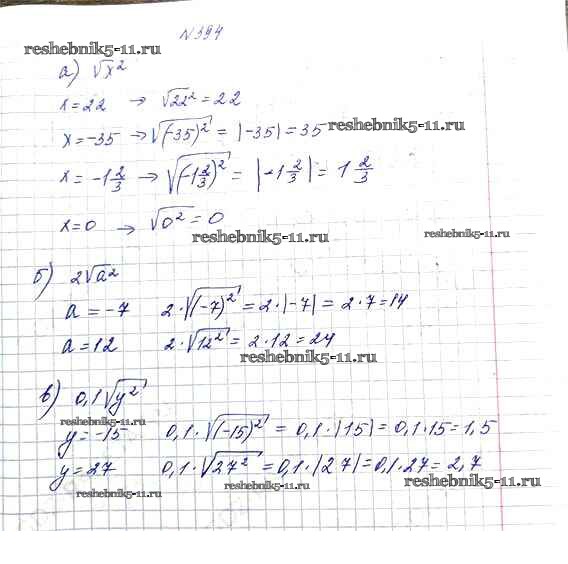 №394
reshebnik5-11.ru
а) √x²
x=22 → √22² = 22
x=-35 → √(-35)² = |-35| = 35
reshebnik5-11.ru
x = -1 2/3 → √(-1 2/3)² = |-1 2/3| = 1 2/3
x=0 → √0² = 0
reshebnik5-11.ru
reshebnik5-11.ru
б) 2√a²
a = -7 2·√(-7)² = 2·|-7| = 2·7=14
a=12 2·√12² = 2·12 = 24
reshebnik5-11.ru
в) 0,1√y²
reshebnik5-11.ru
y=-15 0,1·√(-15)² = 0,1·|15| = 0,1·15 = 1,5
y=27 0,1·√27² = 0,1·|27| = 0,1·27 = 2,7
reshebnik5-11.ru
reshebnik5-11.ru
reshebnik5-11.ru